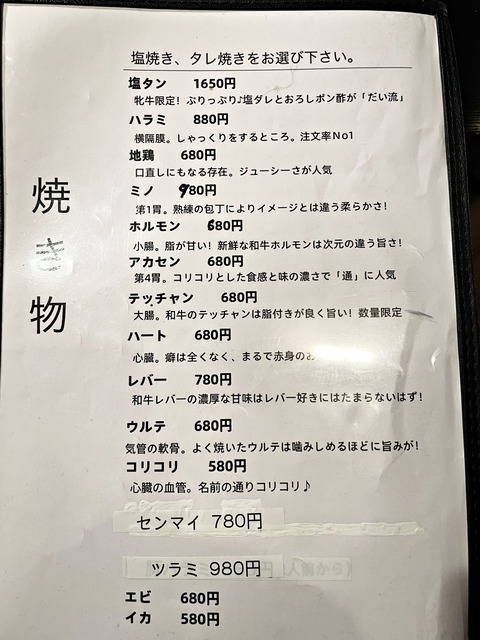 焼き物
塩焼き、タレ焼きをお選び下さい。
塩タン 1650円
牝牛限定! ぷりっぷり♪塩ダレとおろしポン酢が「だい流」
ハラミ 880円
横隔膜。しゃっくりをするところ。注文率No1
地鶏 680円
口直しにもなる存在。ジューシーさが人気
ミノ 980円
第1胃。熟練の包丁によりイメージとは違う柔らかさ!
ホルモン 680円
小腸。脂が甘い! 新鮮な和牛ホルモンは次元の違う旨さ!
アカセン 680円
第4胃。コリコリとした食感と味の濃さで「通」に人気
テッチャン 680円
大腸。和牛のテッチャンは脂付きが良く旨い! 数量限定
ハート 680円
心臓。癖は全くなく、まるで赤身のお
レバー 780円
和牛レバーの濃厚な甘味はレバー好きにはたまらないはず!
ウルテ 680円
気管の軟骨。よく焼いたウルテは噛みしめるほどに旨みが!
コリコリ 580円
心臓の血管。名前の通りコリコリ♪
センマイ 780円
ツラミ 980円
エビ 680円
イカ 580円